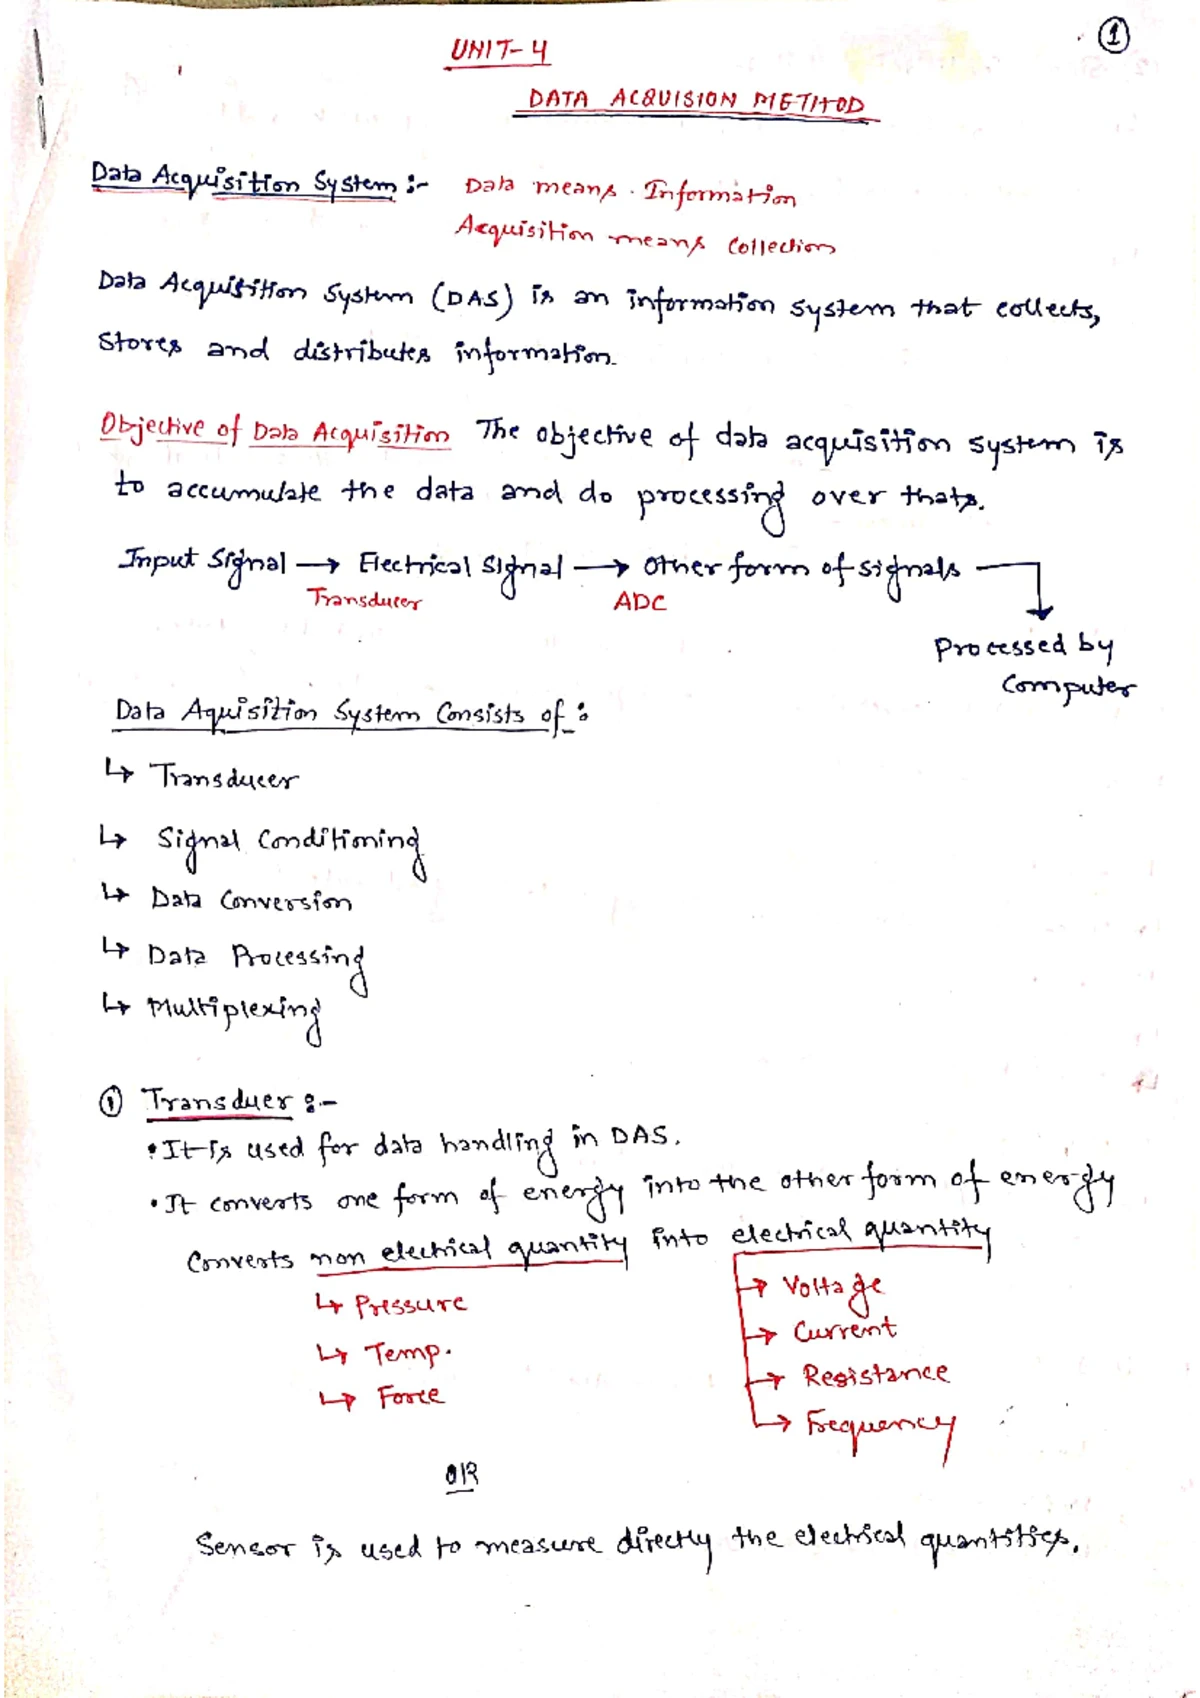 1
UNIT-4
DATA ACQUISION METHOD
Data Acquisition System :- Data means Information
Acquisition means Collection
Data Acquisition System (DAS) is an information system that collects,
Stores and distributes information.
Objective of Data Acquisition The objective of data acquisition system is
to accumulate the data and do processing over thats.
Input Signal → Electrical Signal → Other form of signals
Transducer ADC
Processed by
Computer
Data Aquisition System Consists of :
↳ Transducer
↳ Signal Conditioning
↳ Data Conversion
↳ Data Processing
↳ Multiplexing
① Transduer :-
• It is used for data handling in DAS.
• It converts one form of energy into the other form of energy
Converts non electrical quantity into electrical quantity
↳ Pressure → Voltage
→ Current
↳ Temp. → Resistance
↳ Force → Frequency
OR
Sensor is used to measure directly the electrical quantities.